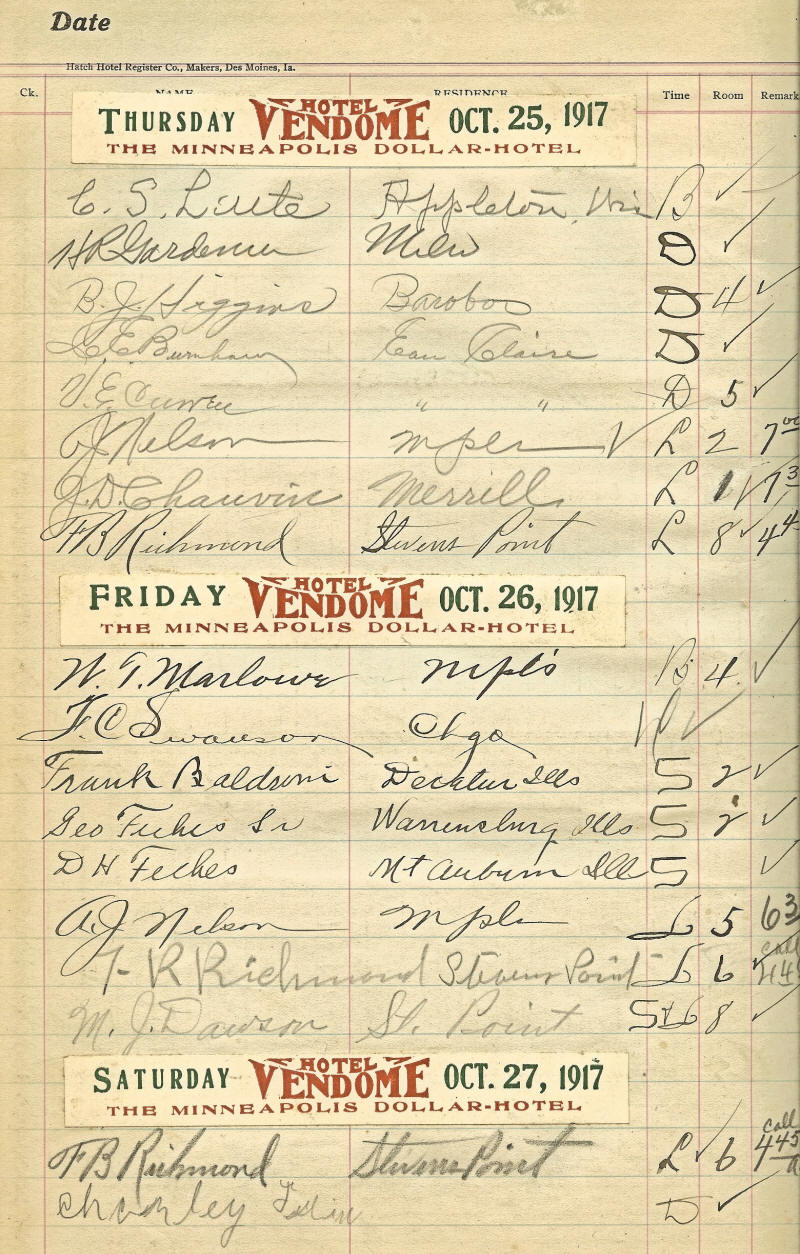 Date
Hatch Hotel Register Co., Makers, Des Moines, Ia.
Ck. NAME RESIDENCE Time Room Remark
THURSDAY HOTEL VENDOME OCT. 25, 1917
THE MINNEAPOLIS DOLLAR-HOTEL
C. S. Appleton, Wis B ✓
HR Gardener Milw D ✓
B. J. Higgins Baraboo D 4 ✓
Burnham Eau Claire D ✓
V. E. Curran " " D 5 ✓
A J Nelson mpls ✓ L 2 7 00
J. D. Chauvin Merrill L 1 ✓ 7 3
FB Richmond Stevens Point L 8 ✓ 4 4
FRIDAY HOTEL VENDOME OCT. 26, 1917
THE MINNEAPOLIS DOLLAR-HOTEL
W. T. Marlowe mpl's B 4 ✓
F. C Swanson Chgo ✓
Frank Baldroni Decatur Ills S 2 ✓
Geo Fuches Sr Warrensburg Ills S 2 ✓
D H Feches Mt Auburn Ill S ✓
A. J Nelson mpls L 5 6 3
R Richmond Stevens Point L 6 ✓ call 4 4
M. J. Dawson St. Point S & L 8 ✓
SATURDAY HOTEL VENDOME OCT. 27, 1917
THE MINNEAPOLIS DOLLAR-HOTEL
FB Richmond Stevens Point L ✓ 6 call 445 a
Charley D ✓